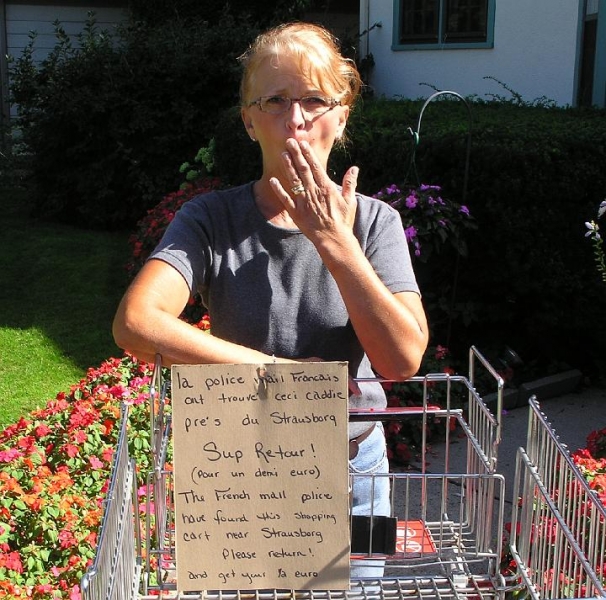 la police mail Francais
ont trouvé ceci caddie
pre's du Strausborg
Sup Retour!
(pour un demi euro)
The French mall police
have found this shopping
cart near Strausborg
Please return!
and get your ½ euro